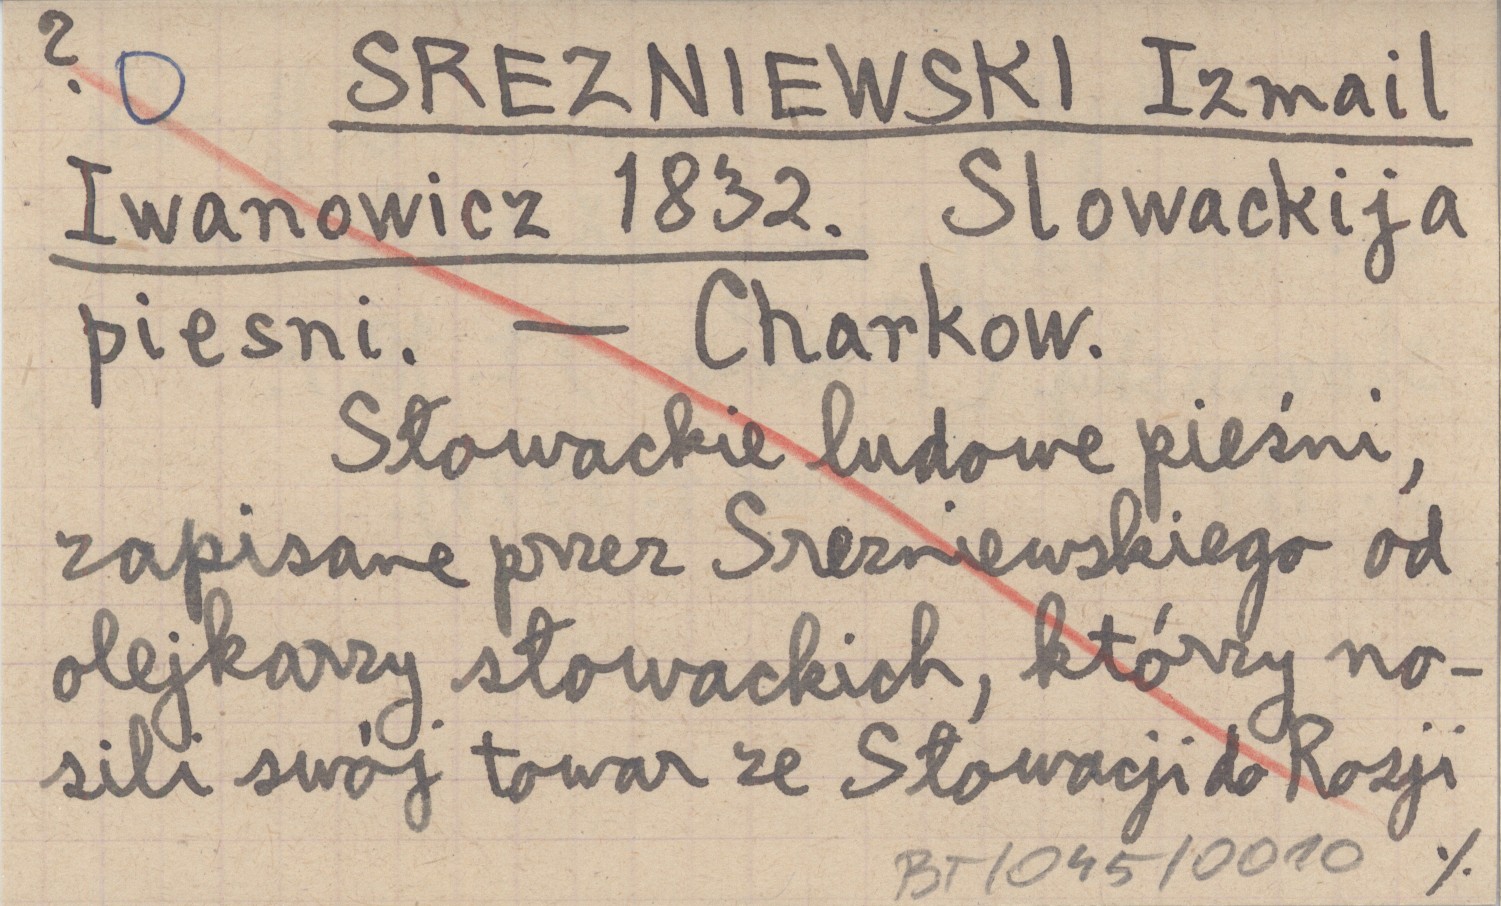 ? O SREZNIEWSKI Izmail
Iwanowicz 1832. Slowackija
piesni. — Charkow.
Słowackie ludowe pieśni,
zapisane przez Srezniewskiego od
olejkarzy słowackich, którzy no-
sili swój towar ze Słowacji do Rosji
BT/045/0010 ./.